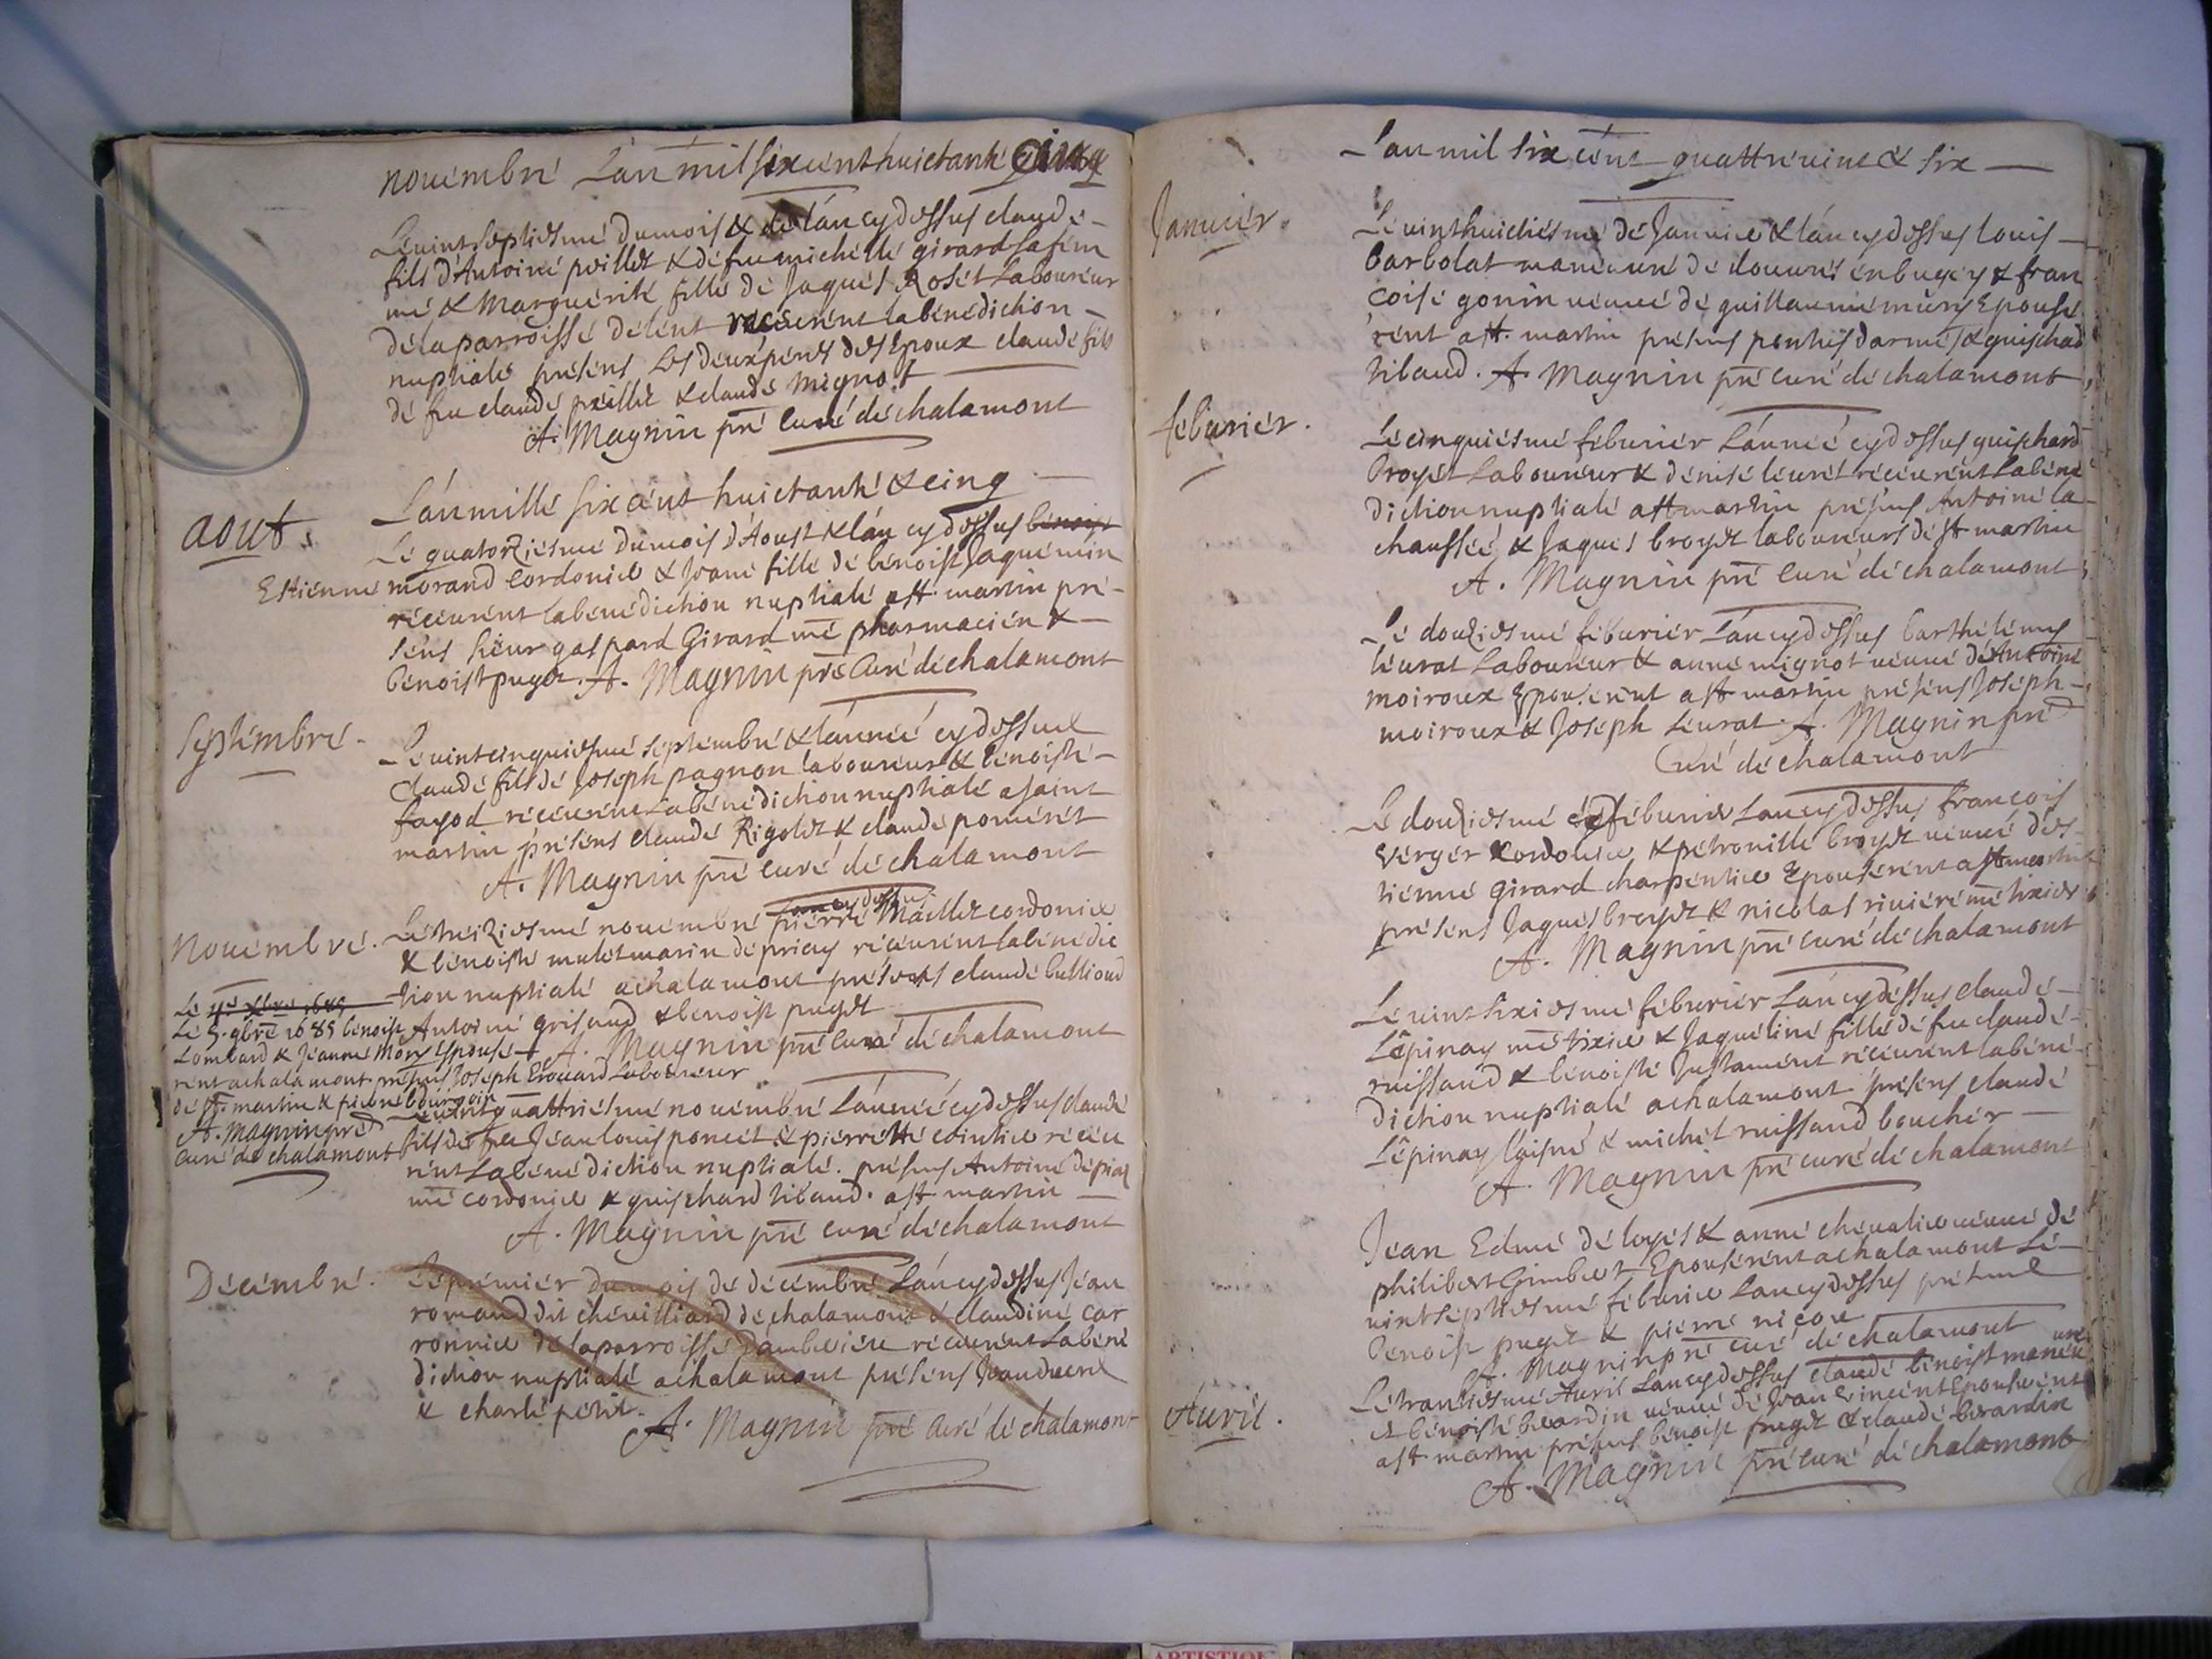 nouembré L'an mil six cent huictanté cinq
Lé uint septiesmé du mois & dé l'an cy dessus claudé
fils d'Antoiné peillet & dé feu michéllé girard sa fém
mé & Marguérité fillé dé Jaqués Rosét Laboureur
dé la parroissé dé lent recéurént la bénédiction
nuptialé présens Les deux pérés des Epoux claudé fils
dé feu claudé peillet & claudé mignot
A. Magnin pré curé dé chalamont
L'an millé six cént huictanté & cinq
aout.
Lé quatorziesmé du mois d'Aoust & l'an cy dessus bénoist
Estiénné morand cordonier & Joané fillé dé bénoist Jaquémin
récéurént la bénédiction nuptialé a st. martin pré-
séns sieur gaspard Girard mé pharmacién &
bénoist puget. A. Magnin pré Curé dé chalamont
Séptémbré.
Lé uintcinquiesmé séptémbré & l'anneé cy dessus
Claudé fils dé Joséph pagnon laboureur & bénoisté
fayod récéurént la bénédiction nuptialé a saint
martin présens claudé Rigolet & claudé pomérét
A. Magnin pré curé dé chalamont
l'an cy dessus
Nouémbré.
Lé treiziesmé nouémbré piérré Maillet cordonier
& bénoisté mulet marin dé priay récéurént la bénédic
tion nuptialé a chalamont présens claudé bullioud
Antoiné grisaud & bénoist puget
A. Magnin pré curé dé chalamont
Lé 5. 9bré 1685 bénoist
Lombard & Jéanné Mory Espousé-
rént a chalamont présens Joséph Erouard Laboureur
dé st. martin & piérré bourgoin
A. Magnin pré
curé dé chalamont
Lé uint quattriésmé nouémbré L'anneé cy dessus claudé
fils dé feu Jéan louis poncét & piérrétté cointier récéu
rént la bénédiction nuptialé. présens Antoiné dépias
mé cordonier & guischard tibaud. a st. martin
A. Magnin pré curé dé chalamont
Décémbré.
Lé prémiér du mois dé décémbré L'an cy dessus Jéan
romand dit chéuilliard dé chalamont & claudiné car
ronnier dé la parroissé d'ambérieu récéurént la béné
diction nuptialé a chalamont présens Jean
& charlé pétit.
A. Magnin pré Curé dé chalamont
L'an mil six cént quattréuint & six
Januiér.
Lé uinthuictiésmé dé Januier & l'an cy dessus louis
barbolat maneuuré dé douurés én bugey & fran
çoisé gonin ueuué dé guillaumé mury Epousé
rént a st. martin présens & guischard
tibaud. A. Magnin pré curé dé chalamont
féburiér.
Lé cinquiésmé féburiér L'anneé cy dessus guischard
broyét Laboureur & dénisé léurat récéurént la béné
diction nuptialé a st martin présens Antoiné la
chaussée & Jaqués broyet laboureurs dé st martin
A. Magnin pré curé dé chalamont
Lé douziesmé féburiér L'an cy dessus barthélémy
léurat Laboureur & anné mignot ueuué dé Antoiné
moiroux Epousérént a st martin présens Joséph
moiroux & Joséph Léurat. A. Magnin pré
Curé dé chalamont
Lé douziesmé féburier L'an cy dessus françois
Vérgér cordonier & pétronillé broyet ueuué d'es-
tiénné girard charpéntier Epousérént a st martin
présens Jaqués broyet & nicolas riuiéré mé tixier
A. Magnin pré curé dé chalamont
Lé uint sixiesmé féburiér L'an cy dessus claudé
Lépinay mé tixier & Jaquéliné fillé dé feu claudé
ruissand & bénoisté Justamént récéurént la béné
diction nuptialé a chalamont présens claudé
Lépinay l'aisné & michél ruissand bouchér
A. Magnin pré curé dé chalamont
Jéan Edmé dé loyés & anné chéualier ueuué dé
philibért Gimbert Epousérént a chalamont Lé
uint séptiésmé féburier L'an cy dessus présens
bénoist puget & piérré
A. Magnin pré curé dé chalamont
Auril.
Lé trantiésmé Auril L'an cy dessus claudé bénoist maneu
uré
& bénoisté bérardin ueuué dé Jéan Vincént Epousérént
a st. martin présens bénoist puget & claudé bérardin
A. Magnin pré curé dé chalamont
ARTISTIQUE